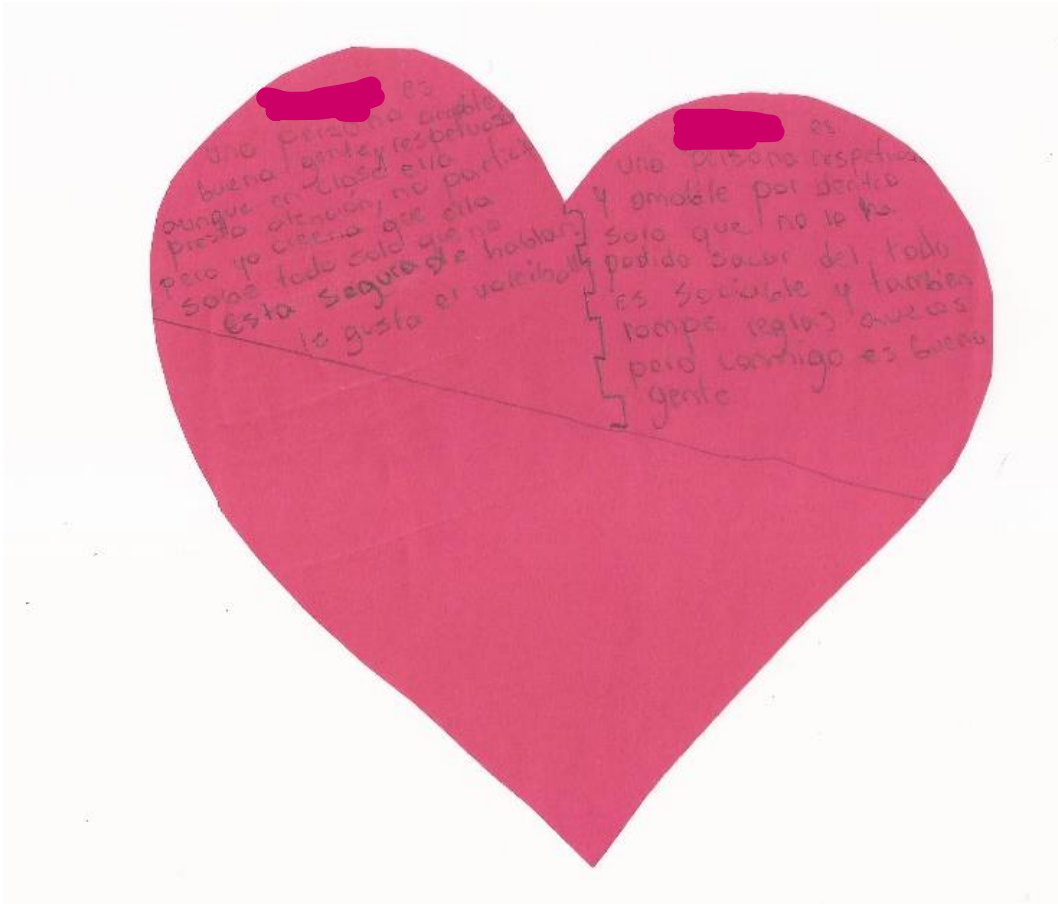 es
una persona amable
buena gente y respetuosa
aunque en clase ella
presta atención, no particia
pero yo creeria que ella
sabe todo solo que no
esta segura de hablar.
la gusta el voleiball
es
una persona respetuosa
y amable por dentro
solo que no lo ha
podido sacar del todo
es sociable y tambien
rompe reglas aveces
pero conmigo es buena
gente